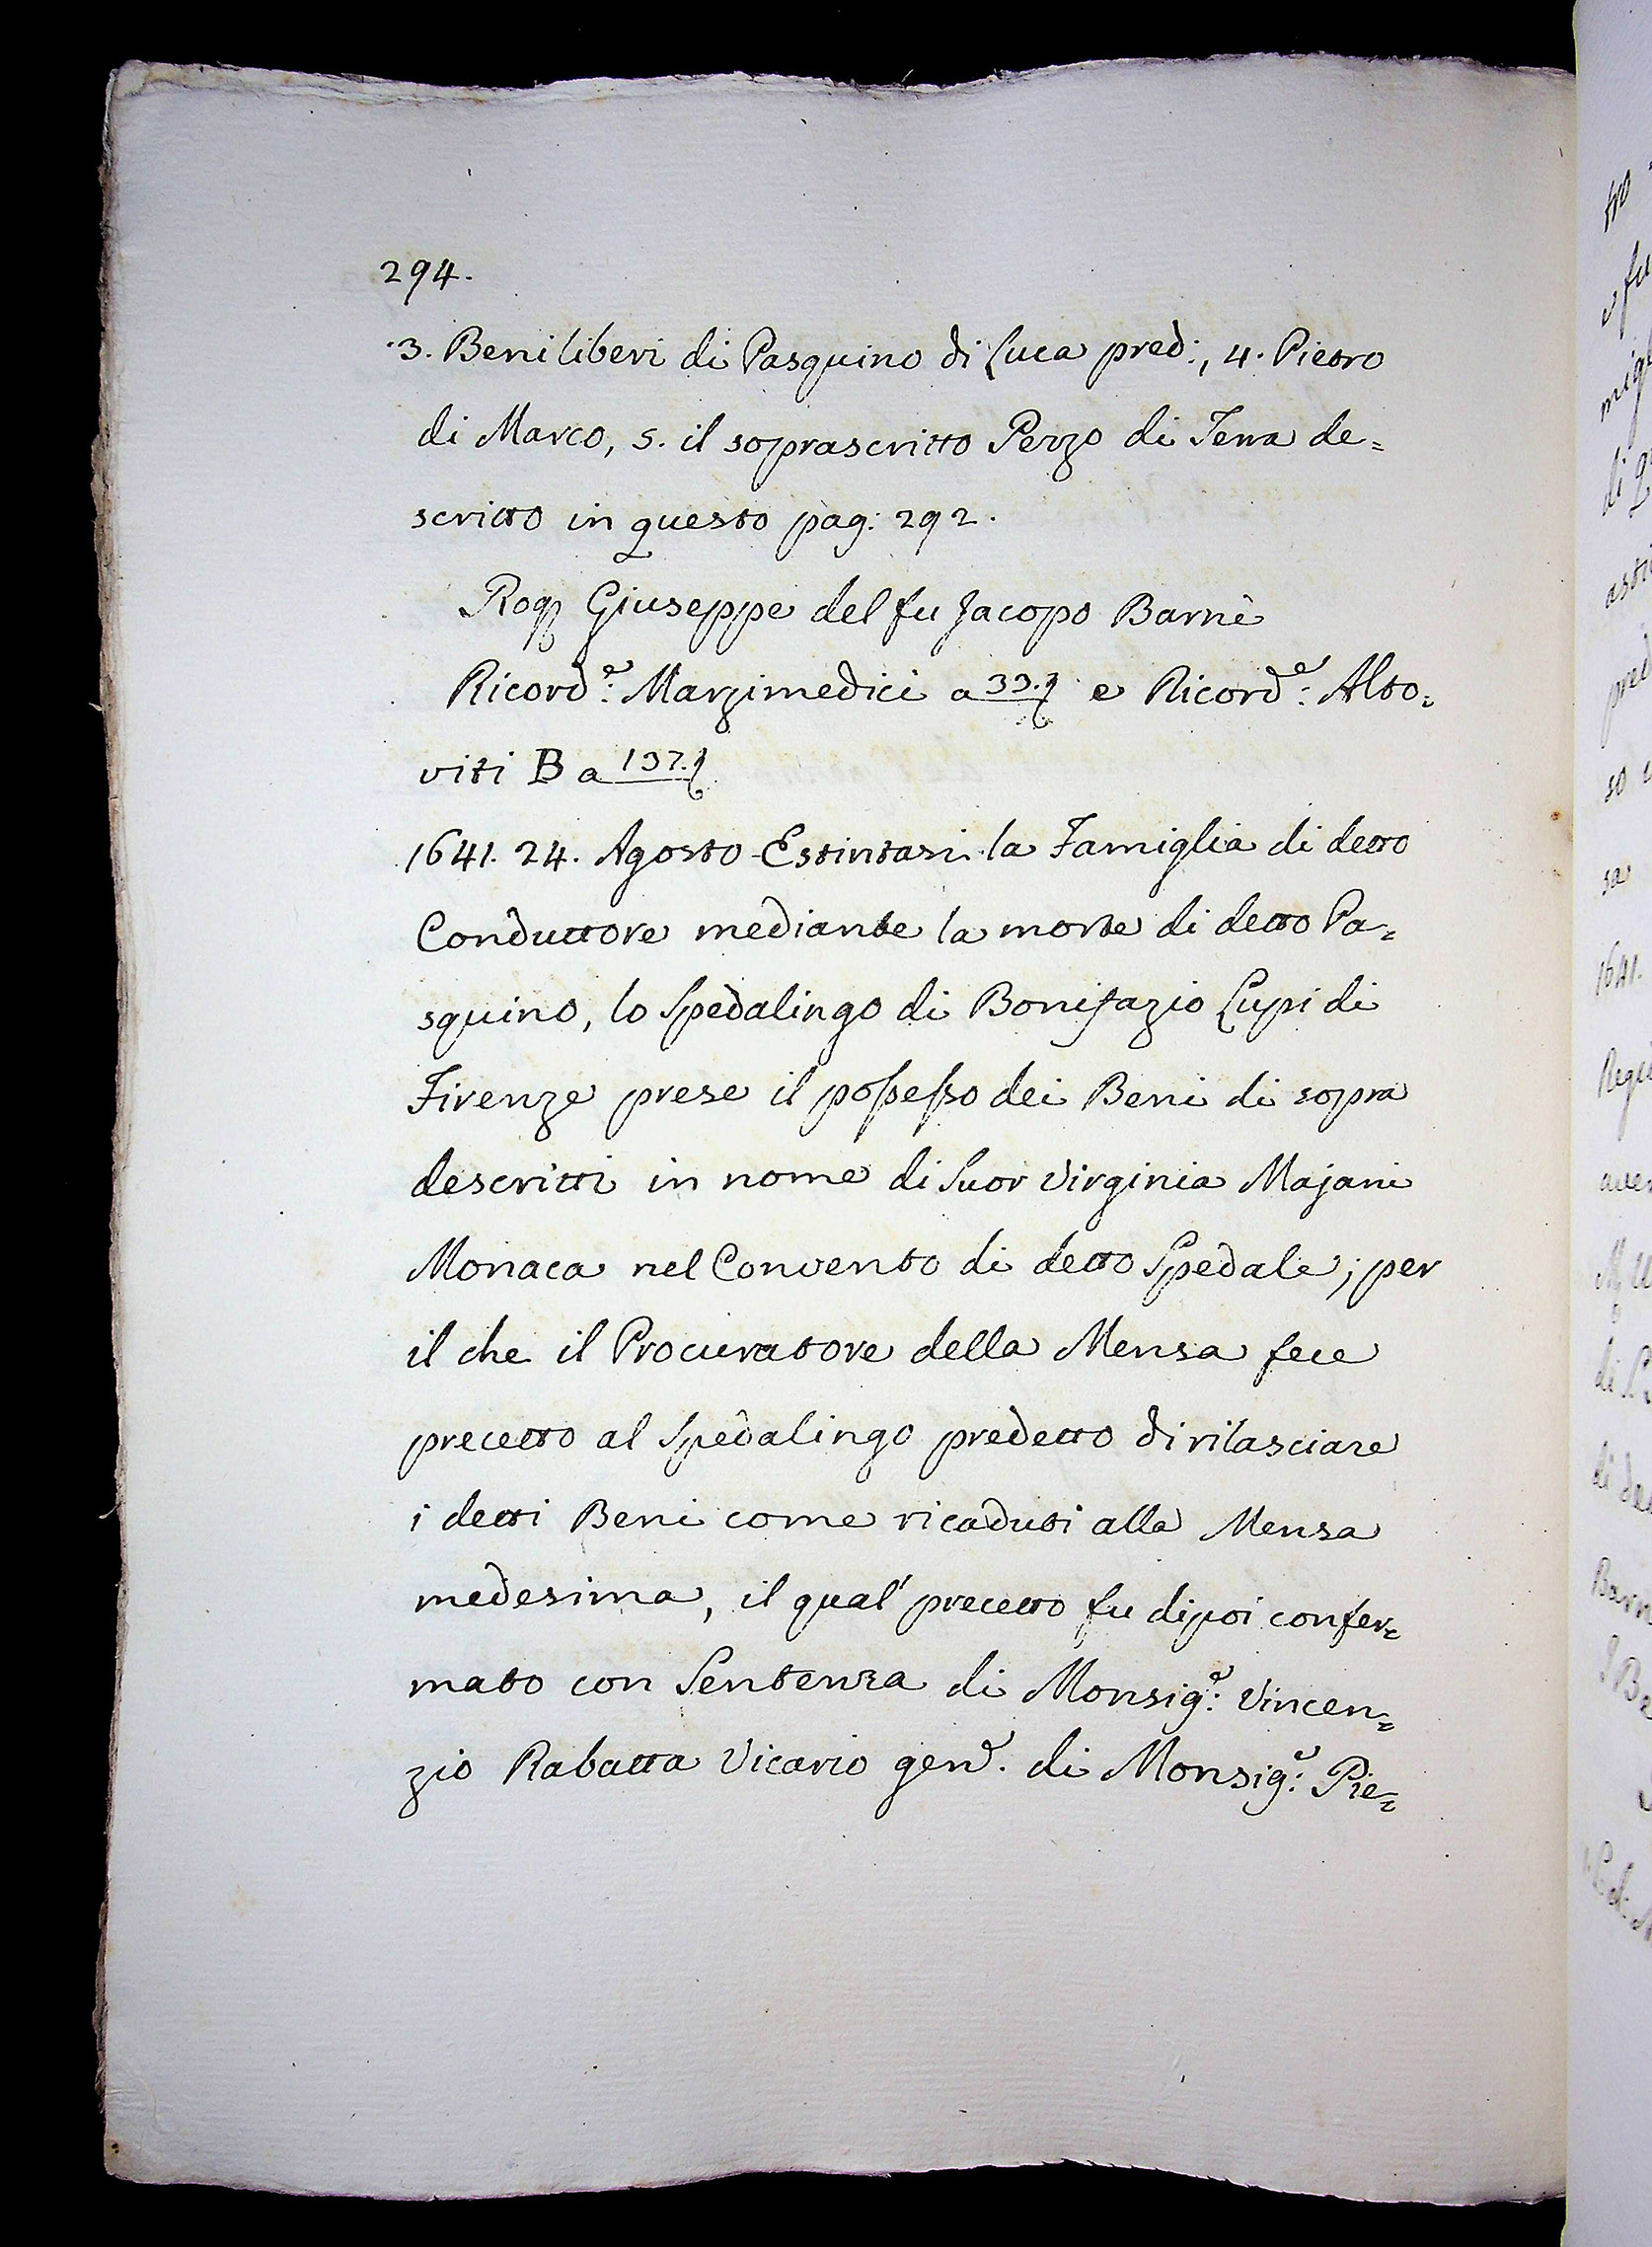 294.
3. Beni liberi di Pasquino di Luca pred:, 4. Pietro
di Marco, 5. il soprascritto Pezzo di Terra de=
scritto in questo pag: 292.
Rog Giuseppe del fu Jacopo Barni
Ricord:e Marzimedici a 33. e Ricord:e Alto=
viti B a 137.
1641. 24. Agosto Estintasi la Famiglia di detto
Conduttore mediante la morte di detto Pa=
squino, lo Spedalingo di Bonifazio Lupi di
Firenze prese il possesso dei Beni di sopra
descritti in nome di Suor Virginia Majani
Monaca nel Convento di detto Spedale; per
il che il Procuratore della Mensa fece
precetto al Spedalingo predetto di rilasciare
i detti Beni come ricaduti alla Mensa
medesima, il qual' precetto fu dipoi confer=
mato con Sentenza di Monsig:e Vincen=
zio Rabatta Vicario gen.e di Monsig:e Pie=
1641.